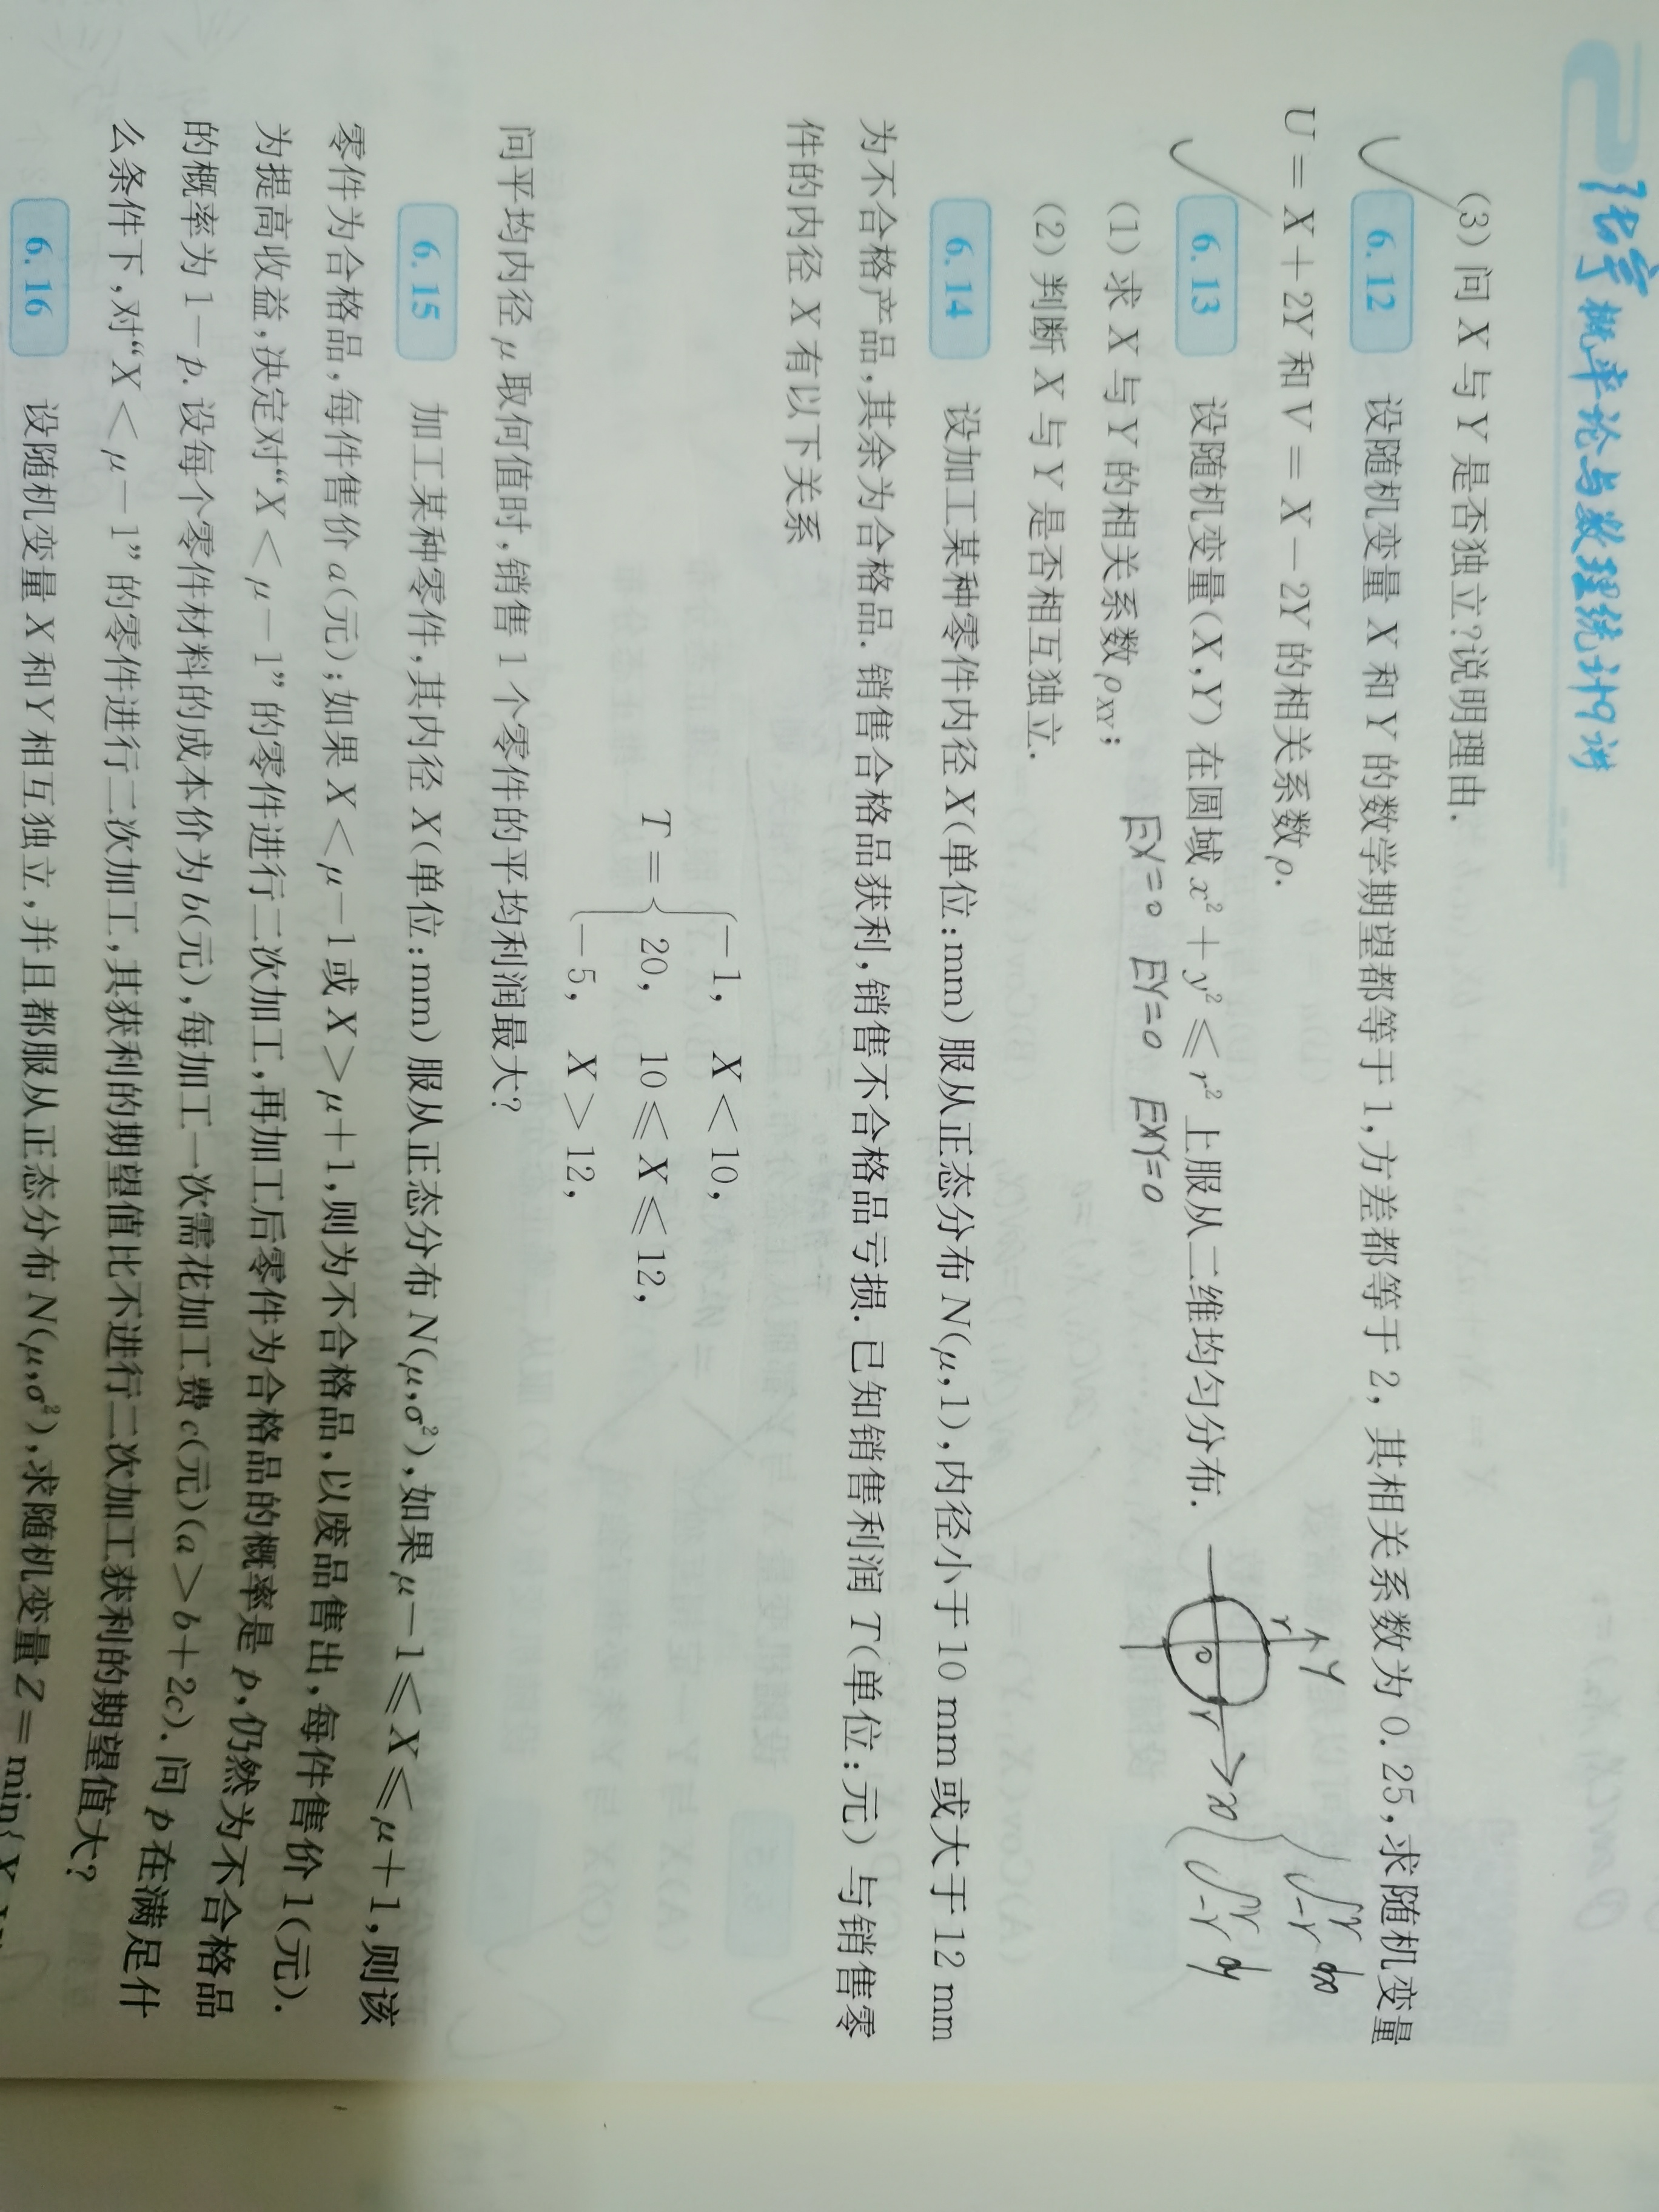 张宇概率论与数理统计9讲
(3) 问 X 与 Y 是否独立?说明理由.
6.12 设随机变量 X 和 Y 的数学期望都等于 1,方差都等于 2, 其相关系数为 0.25,求随机变量
U = X + 2Y 和 V = X - 2Y 的相关系数 ρ.
6.13 设随机变量(X,Y) 在圆域 x² + y² ≤ r² 上服从二维均匀分布.
(1) 求 X 与 Y 的相关系数 ρXY;
EX=0 EY=0 EXY=0
(2) 判断 X 与 Y 是否相互独立.
Y
r
0
r
x
∫-r^r dx
∫-r^r dy
6.14 设加工某种零件内径 X(单位:mm) 服从正态分布 N(μ,1),内径小于 10 mm 或大于 12 mm
为不合格产品,其余为合格品. 销售合格品获利,销售不合格品亏损. 已知销售利润 T(单位:元) 与销售零
件的内径 X 有以下关系
-1, X < 10,
T = { 20, 10 ≤ X ≤ 12,
-5, X > 12,
问平均内径 μ 取何值时,销售 1 个零件的平均利润最大?
6.15 加工某种零件,其内径 X(单位:mm) 服从正态分布 N(μ,σ²),如果 μ-1 ≤ X ≤ μ+1,则该
零件为合格品,每件售价 a(元);如果 X < μ-1 或 X > μ+1,则为不合格品,以废品售出,每件售价 1(元).
为提高收益,决定对“X < μ-1” 的零件进行二次加工,再加工后零件为合格品的概率是 p,仍然为不合格品
的概率为 1-p. 设每个零件材料的成本价为 b(元),每加工一次需花加工费 c(元)(a > b+2c). 问 p 在满足什
么条件下,对“X < μ-1” 的零件进行二次加工,其获利的期望值比不进行二次加工获利的期望值大?
6.16 设随机变量 X 和 Y 相互独立,并且都服从正态分布 N(μ,σ²),求随机变量 Z = min{X